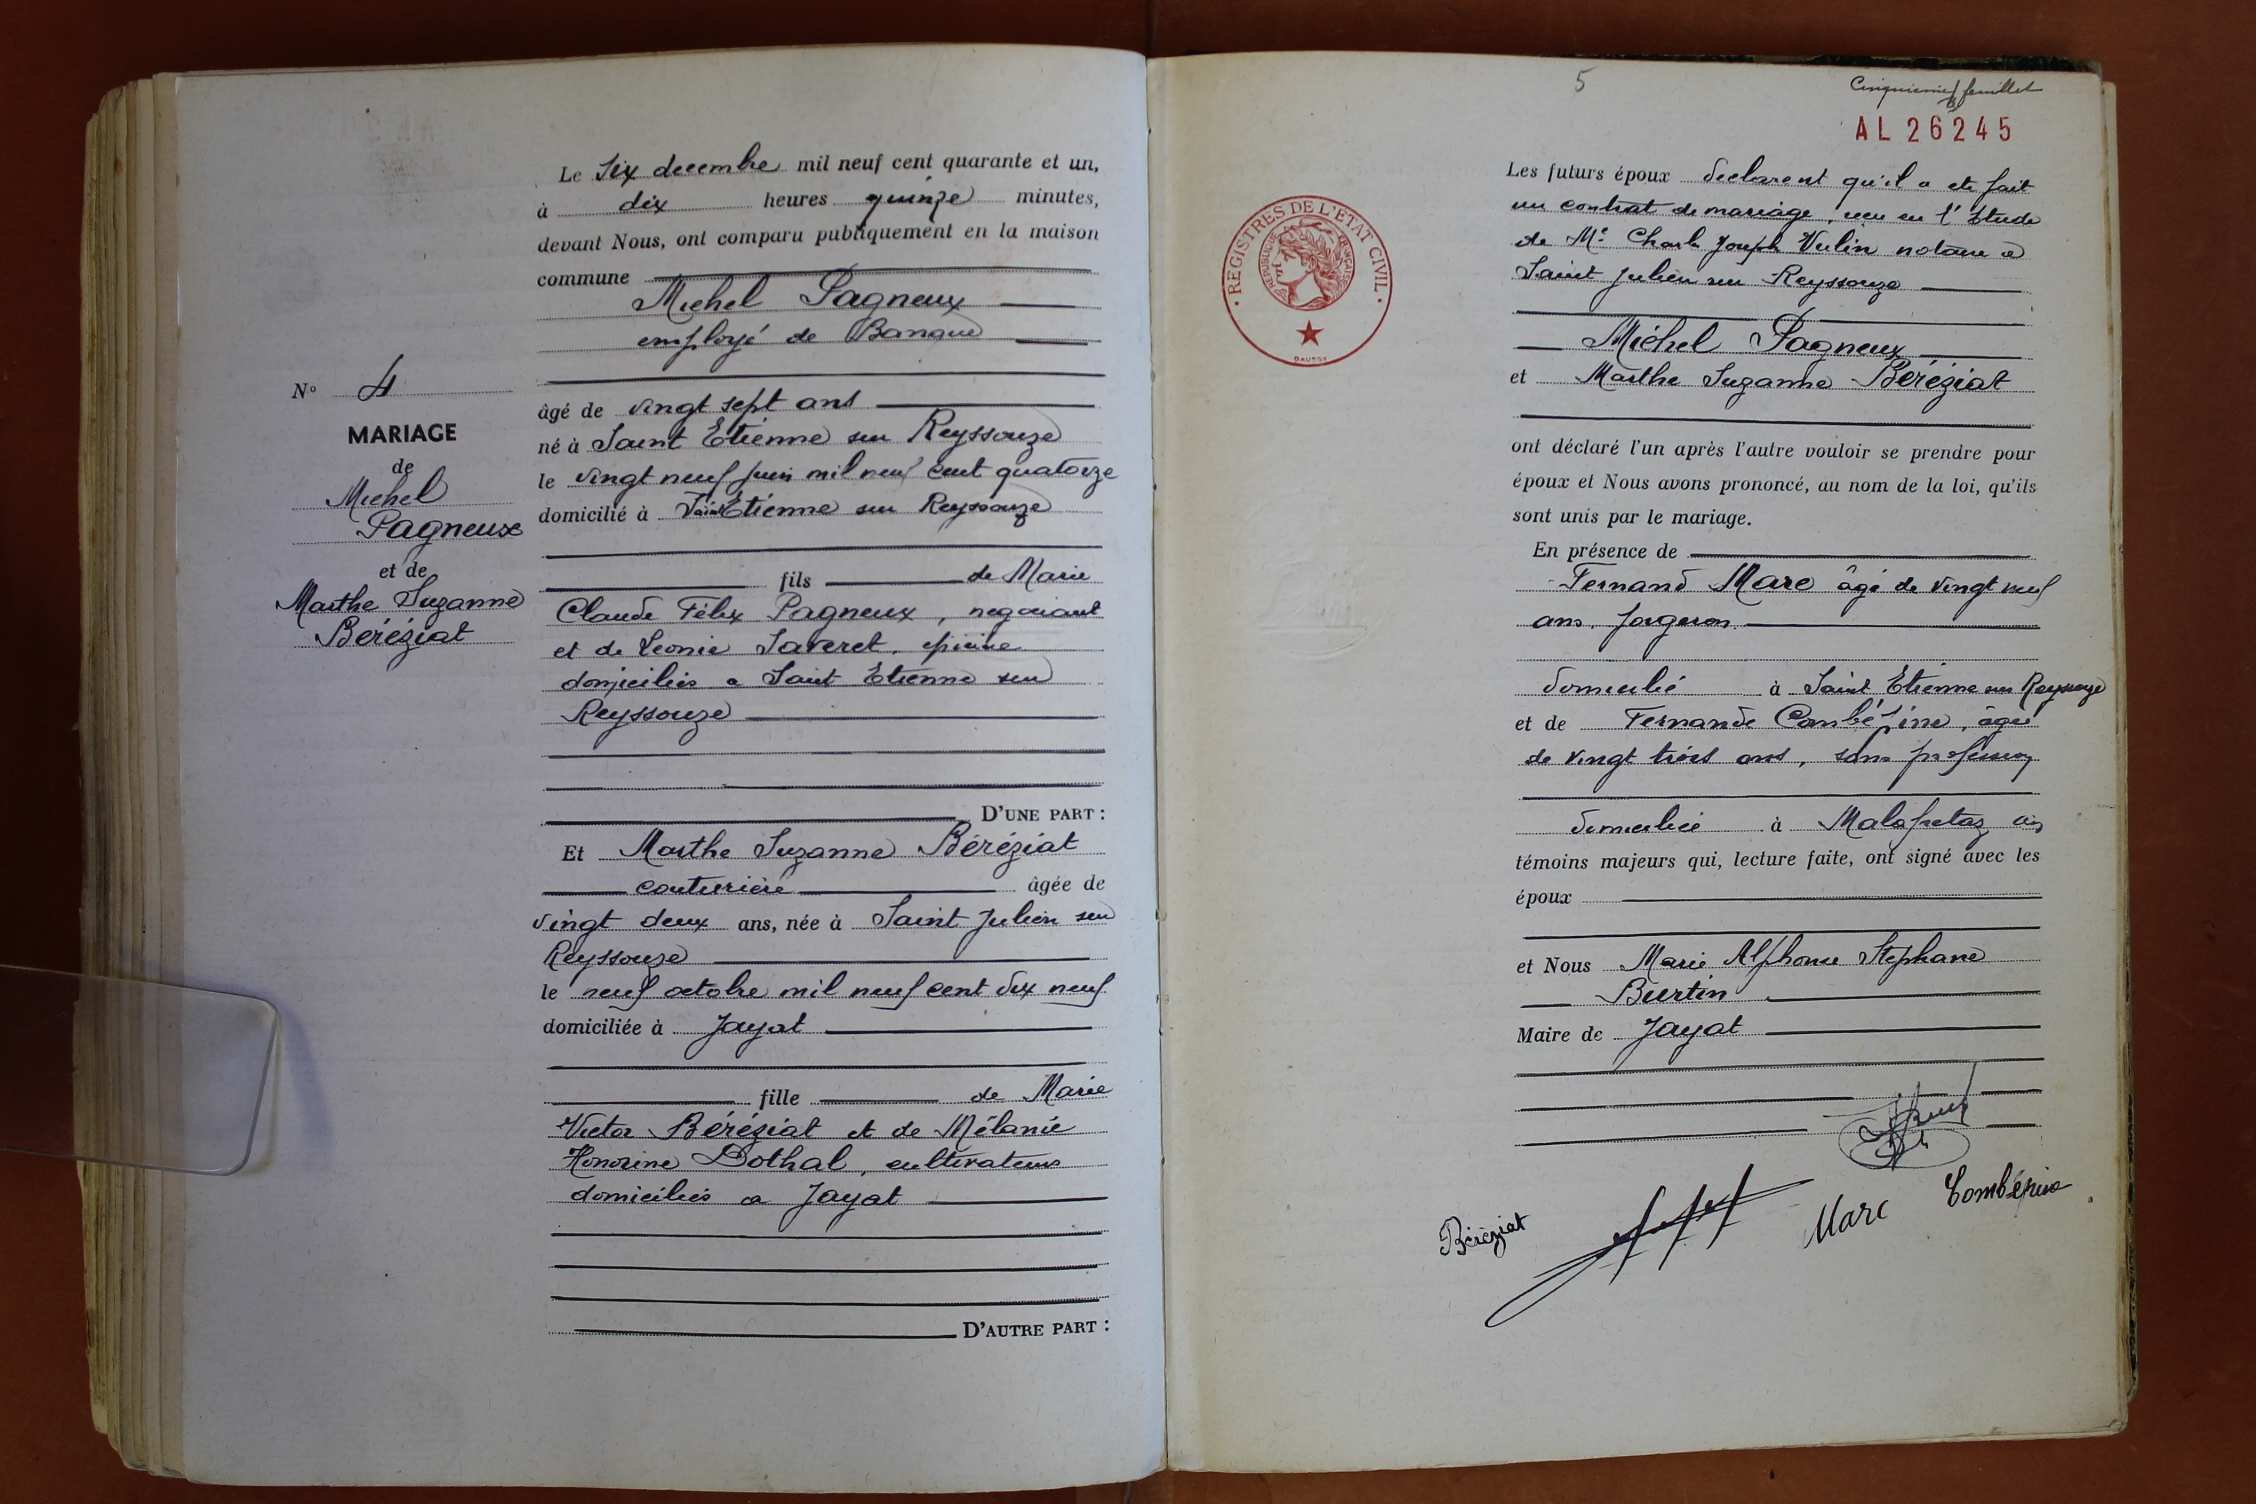 Le Six decembre mil neuf cent quarante et un,
à dix heures quinze minutes,
devant Nous, ont comparu publiquement en la maison
commune
Michel Pagneux
employé de Banque
âgé de vingt sept ans
né à Saint Etienne sur Reyssouze
le vingt neuf juin mil neuf cent quatorze
domicilié à Saint Etienne sur Reyssouze
fils de Marie
Claude Félix Pagneux, negociant
et de Leonie Saveret, epicière
domiciliés a Saint Etienne sur
Reyssouze
D'UNE PART :
Et Marthe Suzanne Béréziat
couturière âgée de
vingt deux ans, née à Saint Julien sur
Reyssouze
le neuf octobre mil neuf cent dix neuf
domiciliée à Jayat
fille de Marie
Victor Béréziat et de Mélanie
Honorine Dothal, cultivateurs
domiciliés a Jayat
D'AUTRE PART :
N° 4
MARIAGE
de
Michel
Pagneux
et de
Marthe Suzanne
Béréziat
5
Cinquième feuillet
AL 26245
REGISTRES DE L'ÉTAT CIVIL
RÉPUBLIQUE FRANÇAISE
DAUSSY
Les futurs époux declarent qu'il a ete fait
un contrat de mariage, recu en l'Etude
de Me Charles Joseph Vulin notaire a
Saint Julien sur Reyssouze
Michel Pagneux
et Marthe Suzanne Béréziat
ont déclaré l'un après l'autre vouloir se prendre pour
époux et Nous avons prononcé, au nom de la loi, qu'ils
sont unis par le mariage.
En présence de
Fernand Marc âgé de vingt neuf
ans, forgeron
domicilié à Saint Etienne sur Reyssouze
et de Fernande Combépine, âgée
de vingt trois ans, sans profession
domiciliée à Malafretaz Ain
témoins majeurs qui, lecture faite, ont signé avec les
époux
et Nous Marie Alphonse Stephane
Burtin
Maire de Jayat
Béréziat
Marc
Combépine